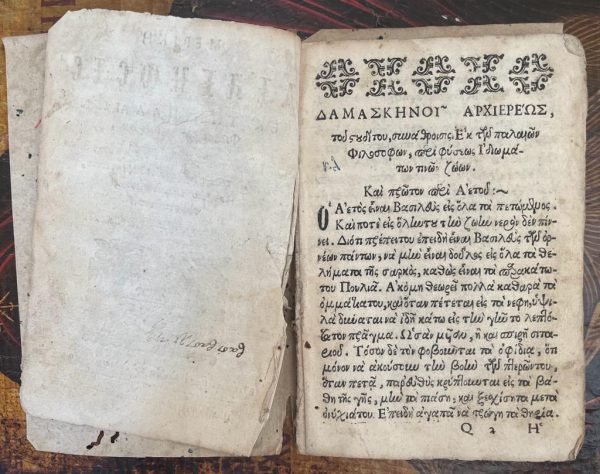 ΔΑΜΑΣΚΗΝΟΥ͂ ΑΡΧΙΕΡΕΏΣ,
τοῦ Στουδίτου, συνάθροισις. Ἐκ τῶν παλαιῶν
Φιλοσόφων, περὶ φύσεως Ἰδιωμά-
των τινῶν ζώων.
Καὶ πρῶτον περὶ Ἀετοῦ:~
Ὁ Ἀετὸς εἶναι Βασιλεὺς εἰς ὅλα τὰ πετώμενος.
Καὶ ποτὲ εἰς ὅλην του τὴν ζωὴν νερὸν δὲν πίν-
νει. Διότι πρέπει του ἐπειδὴ εἶναι Βασιλεὺς τῶν ὀρ-
νέων πάντων, νὰ μὴν εἶναι δοῦλος εἰς ὅλα τὰ θε-
λήματα τῆς σαρκὸς, καθὼς εἶναι τὰ παρακάτω-
του Πουλιά. Ἀκόμη θεωρεῖ πολλὰ καθαρὰ τὰ
ὀμμάτιατου, καὶ ὅταν πέτεται εἰς τὰ νέφη, ὑψη-
λὰ δύναται νὰ ἰδῇ κάτω εἰς τὴν γῆν τὸ λεπτό-
τατον πρᾶγμα. Ὡσὰν
Τόσον δὲ τὸν φοβοῦνται τὰ ὀφίδια, ὅτι
μόνον νὰ ἀκούσουν τὴν βοὴν τῶν πτερῶντου,
ὅταν πετᾷ, παρευθὺς κρύπτονται εἰς τὰ βά-
θη τῆς γῆς, μὴν τὰ πιάσῃ, καὶ ξεσχίσῃ τα μετὰ
ὀνύχιάτου. Ἐπειδὴ ἀγαπᾷ νὰ τρώγῃ τὰ θηρία.
Q 2 Ἡ